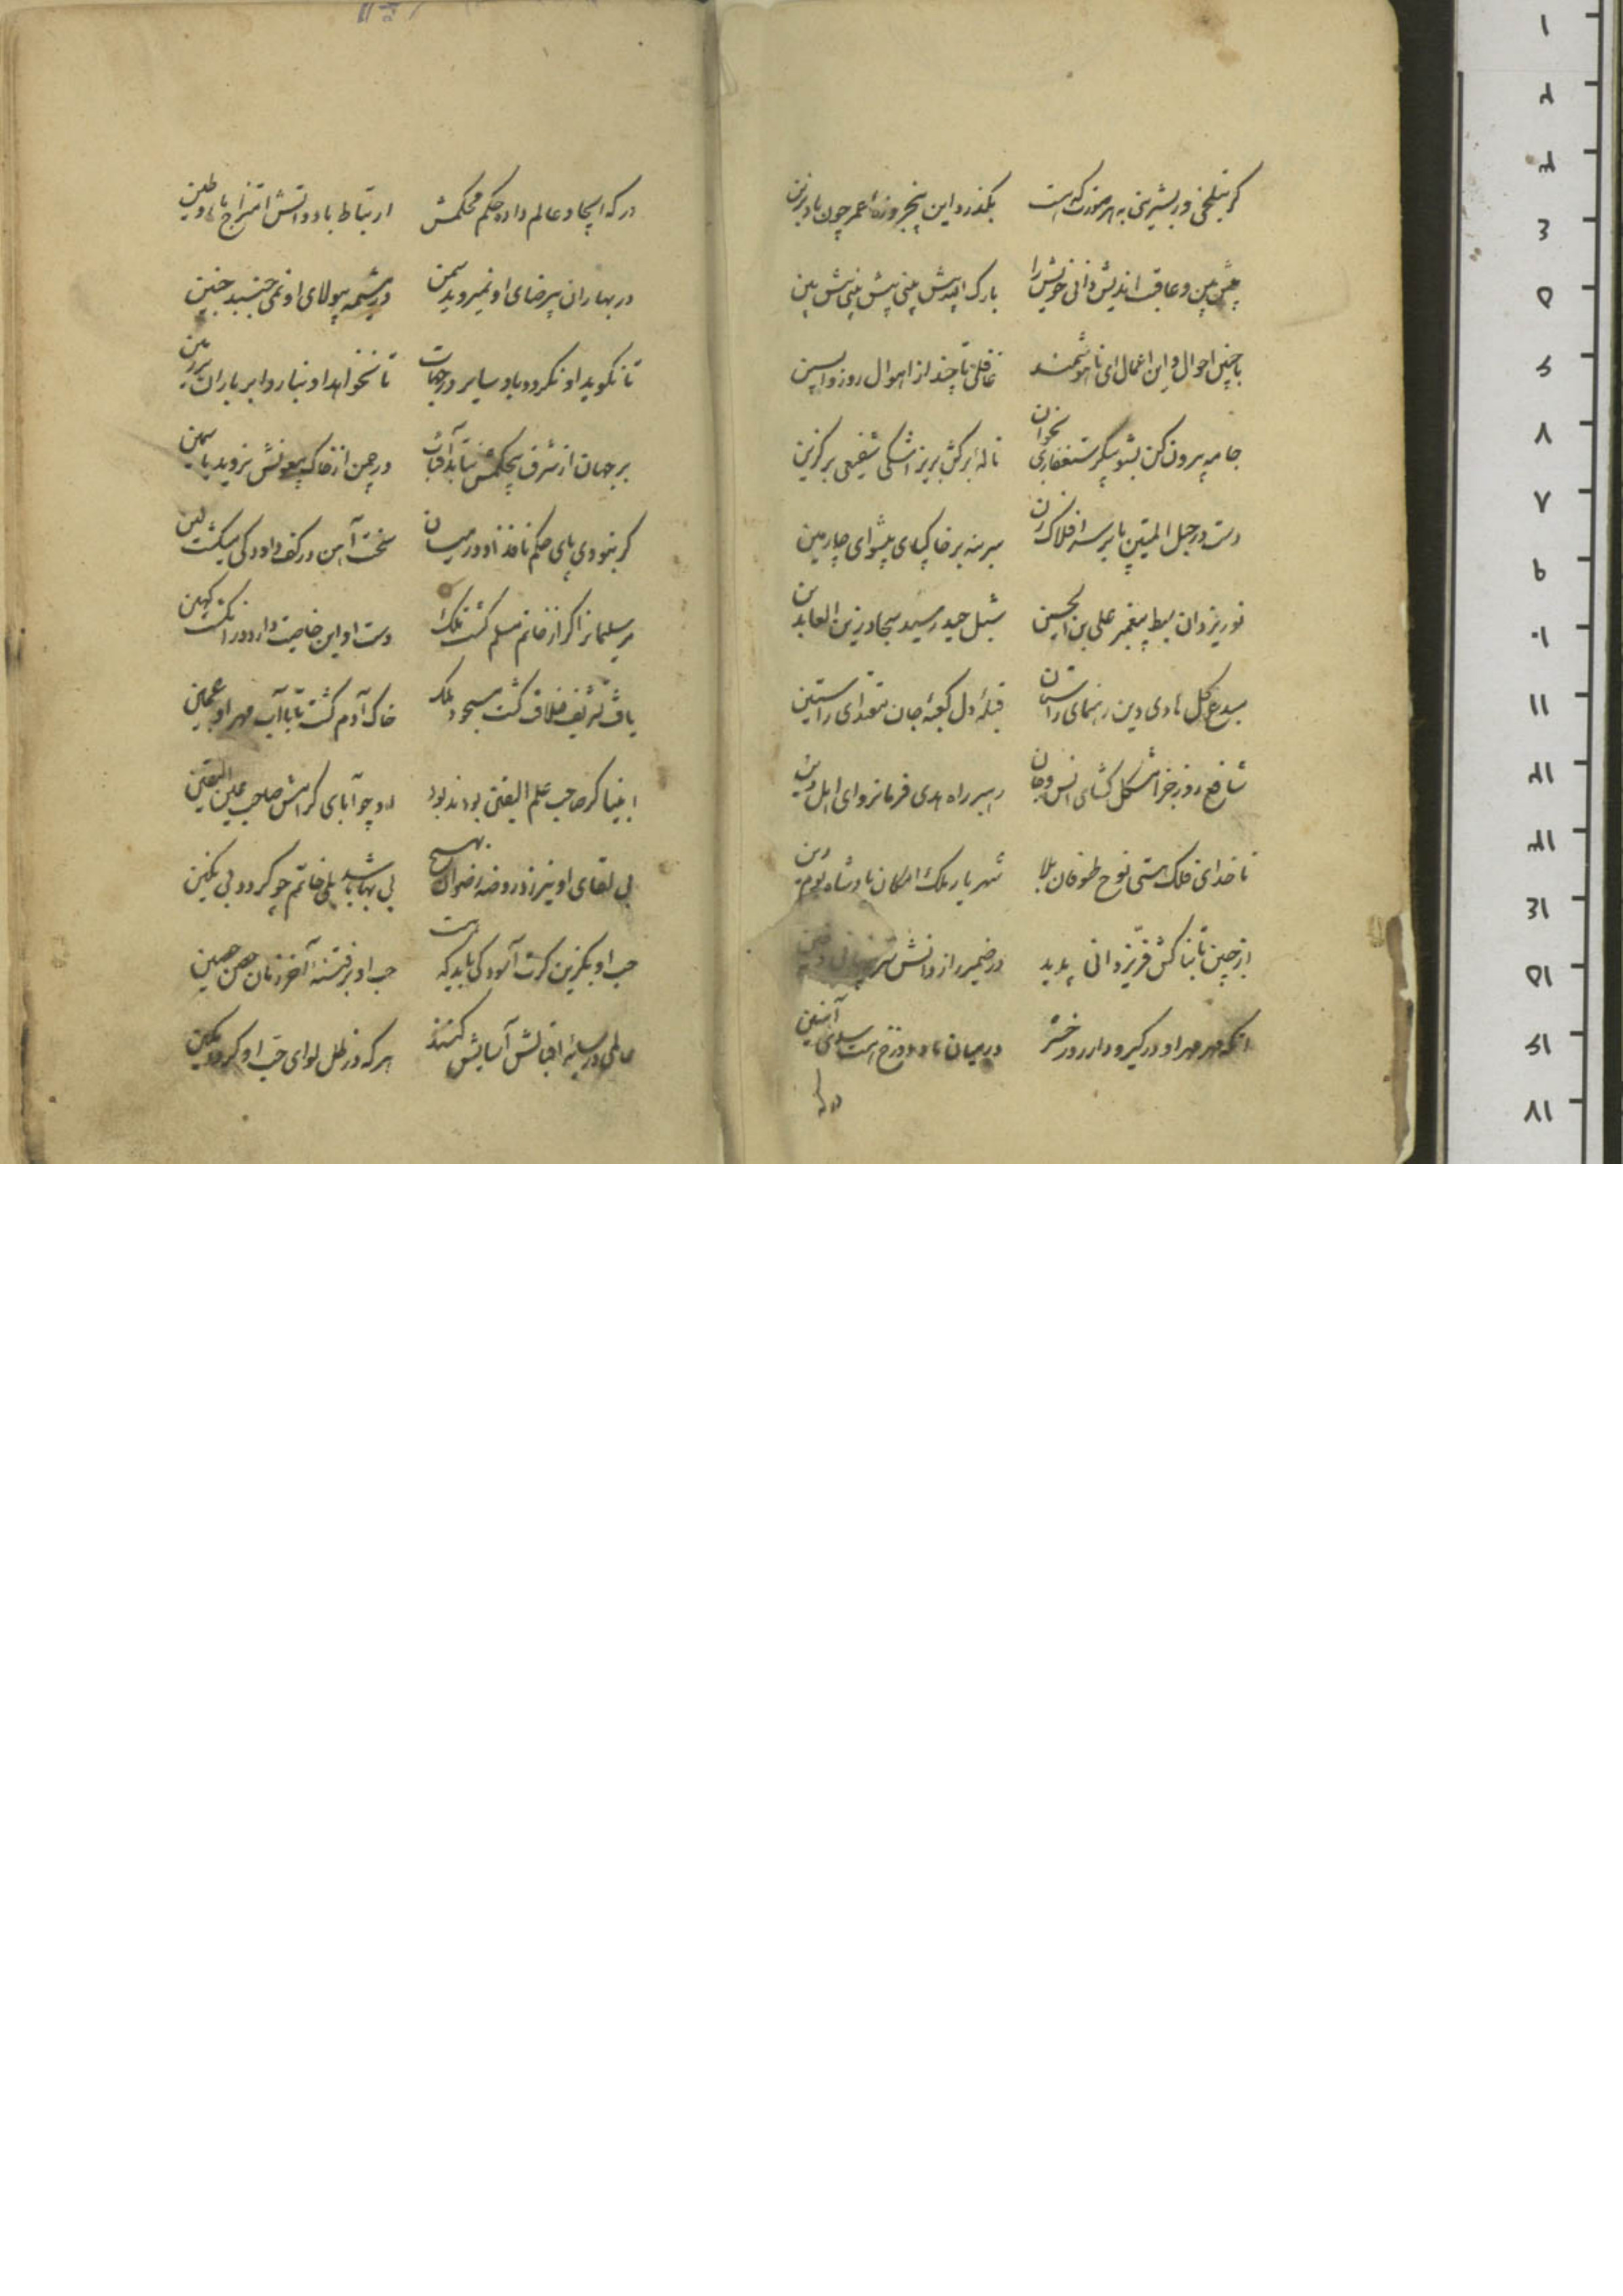 گر بتلخی ور بشیرینی به هر صورت که هست بگذرد این پنجروزه عمر چون باد بزین
پیش بین و عاقبت اندیش دانی خویش را بارک الله پیش بینی پیش بینی پیش بین
با چنین احوال و این اعمال ای ناهوشمند غافلی تا چند از اهوال روز واپسین
جامه بیرون کن بشو پیکر ستغفاری بخوان ناله برکش بریز اشکی شفیعی برگزین
دست در حبل المتین پا بر سر افلاک زن سر بنه بر خاکپای پیشوای چارمین
نور یزدان سبط پیغمبر علی بن الحسین شبل حیدر سید سجاد زین العابدین
مبدع کل هادی دین رهنمای راستان قبله دل کعبه جان مقتدای راستین
شافع روز جزا مشکل گشای انس و جان رهبر راه هدی فرمانروای اهل دین
ناخدای فلک هستی نوح طوفان بلا شهریار ملک امکان پادشاه یوم دین
از جبین تابناکش فر یزدانی پدید در ضمیر راز دانش سر
آنکه مهر مهر او در گیر و دار روز حشر در میان ما و دوزخ هست سدی آهنین
در که
در که ایجاد عالم داد حکم محکمش ارتباط باد و آتش امتزاج ماء و طین
در بهاران بیرضای او نمیروید سمن در مشیمه بیولای او نمی جنبد جنین
تا نگوید او نگردد باد سایر در جهات تا نخواهد او نبارد ابر باران بر زمین
بر جهان از شرق بیحکمش نتابد آفتاب در چمن از خاک بیعونش نروید یاسمین
گر نبودی پای حکم نافذ او در میان سخت آهن در کف داود کی میگشت لین
مر سلیمانرا گر از خاتم مسلم گشت ملک دست او این خاصیت دارد در انگشت کهین
یافت تشریف خلافت گشت مسجود ملک خاک آدم گشت تا با آب مهر او عجین
انبیا گر صاحب علم الیقین بودند بود او چو آبای گرامش صاحب عین الیقین
بی لقای او نیرزد روضه رضوان بهیچ بی بها باشد بلی خاتم چو گردد بی نگین
حب او بگزین گرت آسودگی باید که هست حب او بر فتنه آخر زمان حصن حصین
عالمی در سایه اقبالش آسایش کنند هر که در ظل لوای حب او گردد مکین
۱
۲
۳
۱۱